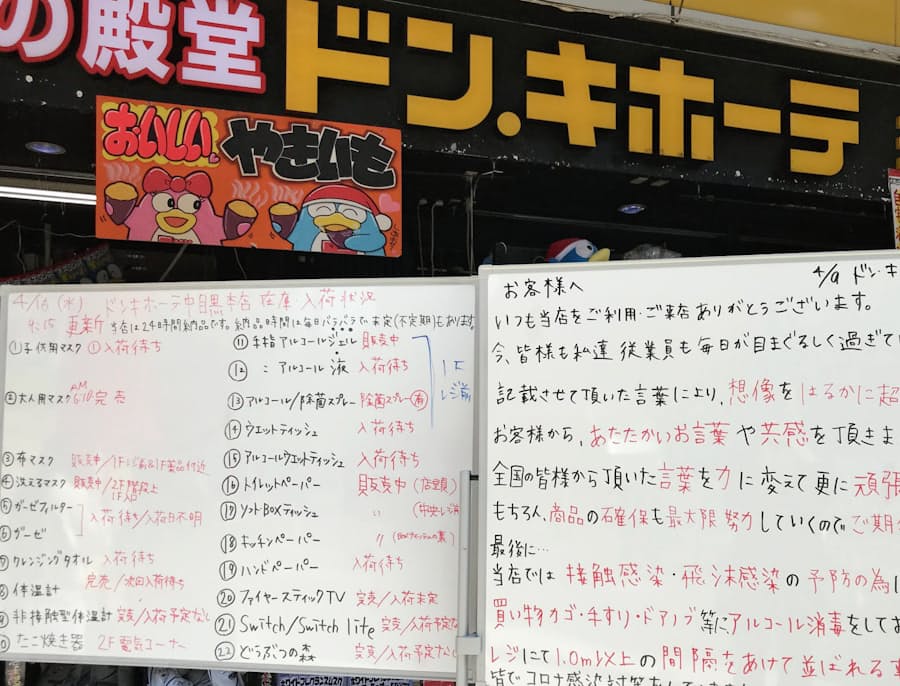 の殿堂 ドン.キホーテ
おいしい
やきいも
4/ (水) ドンキホーテ中目黒本店 在庫・入荷状況
更新 当店は24時間納品です。納品時間は毎日バラバラで未定(不定期)もあります。
①子供用マスク ①入荷待ち
②大人用マスク AM 6:10 完売
③布マスク 販売中/1Fレジ前&1F薬品付近
④洗えるマスク 販売中/2F階段上 1F入口
⑤ガーゼフィルター
⑥ガーゼ
入荷待ち/入荷日不明
⑦クレンジングタオル 入荷待ち
⑧体温計 完売/次回入荷待ち
非接触型体温計 完売/入荷予定なし
たこ焼き器 2F電気コーナー
⑪手指アルコールジェル 販売中
⑫ 〃 アルコール液 入荷待ち
⑬アルコール/除菌スプレー 除菌スプレー 有
1F レジ前
⑭ウエットティッシュ 入荷待ち
⑮アルコールウエットティッシュ 入荷待ち
⑯トイレットペーパー 販売中(店全員)
ソフトBOXティッシュ 〃
⑱キッチンペーパー 〃
⑲ハンドペーパー 入荷待ち
⑳ファイヤースティックTV 完売/入荷未定
㉑Switch/Switch lite 完売/入荷予定な
㉒どうぶつの森 完売/入荷予定なし
4/9 ドン・キ
お客様へ
いつも当店をご利用・ご来店ありがとうございます。
今、皆様も私達従業員も毎日が目まぐるしく過ぎて
記載させて頂いた言葉により、想像をはるかに超
お客様から、あたたかいお言葉や共感を頂きま
全国の皆様から頂いた言葉を力に変えて更に頑張
もちろん、商品の確保も最大限努力していくのでご期
最後に…
当店では接触感染・飛沫感染の予防の為
買い物カゴ・手すり・ドアノブ等にアルコール消毒をしてお
レジにて1.0m以上の間隔をあけて並ばれる
皆でコロナ感染対策をし